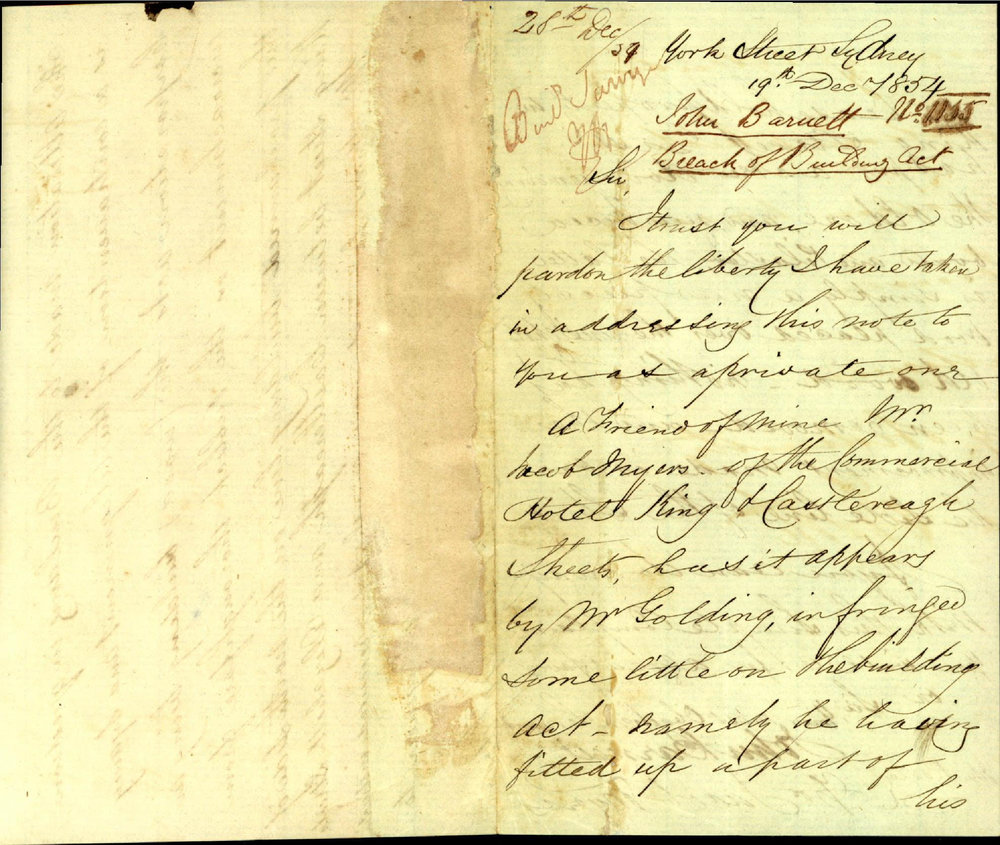 28th Dec
/54
York Street Sydney
19th Dec 1854
John Barnett - No. 1155
Breach of Building Act
Sir,
I trust you will
pardon the liberty I have taken
in addressing this note to
you as a private one
A Friend of mine Mr.
Jacob Myers. of the Commercial
Hotel King & Castlereagh
Streets, has it appears
by Mr Golding, infringed
some little on the building
act - namely he having
fitted up a part of
his